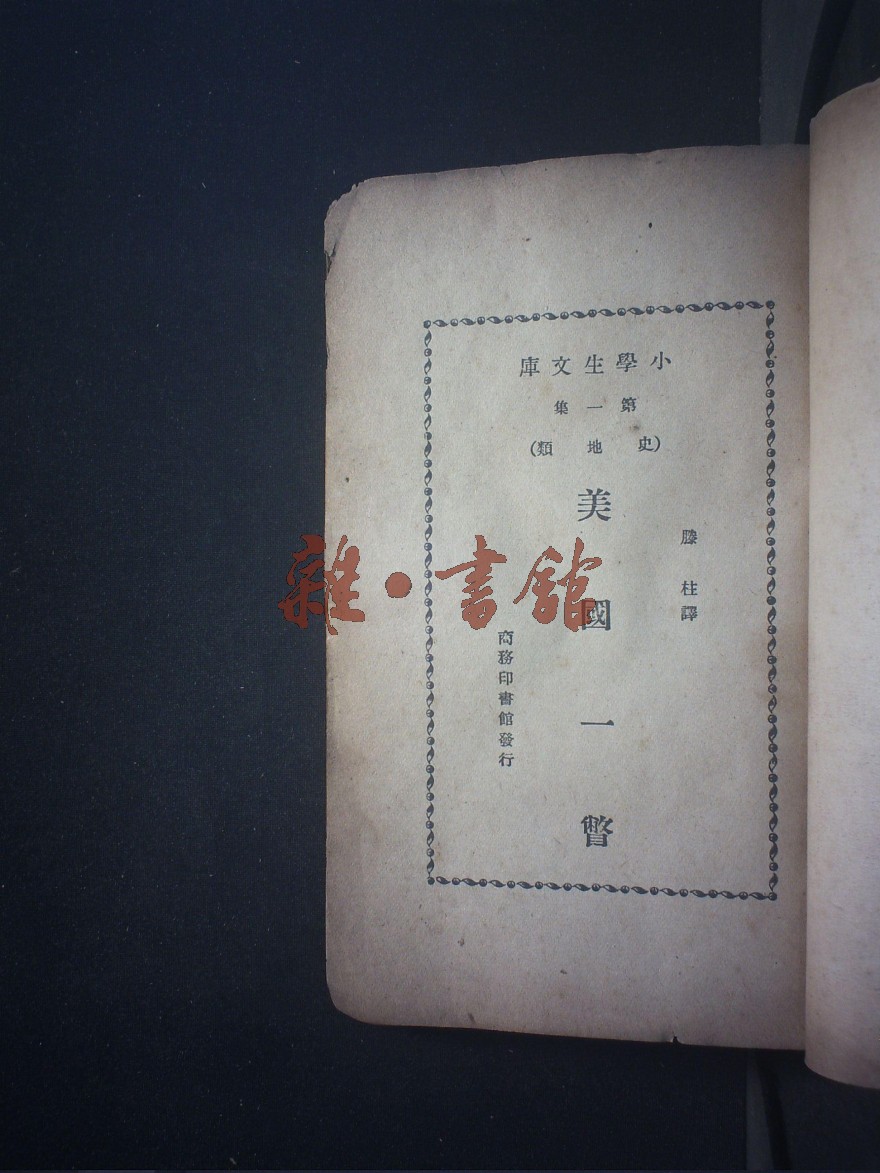 小學生文庫
第一集
(史地類)
滕柱譯
美國一瞥
商務印書館發行
雜·書館